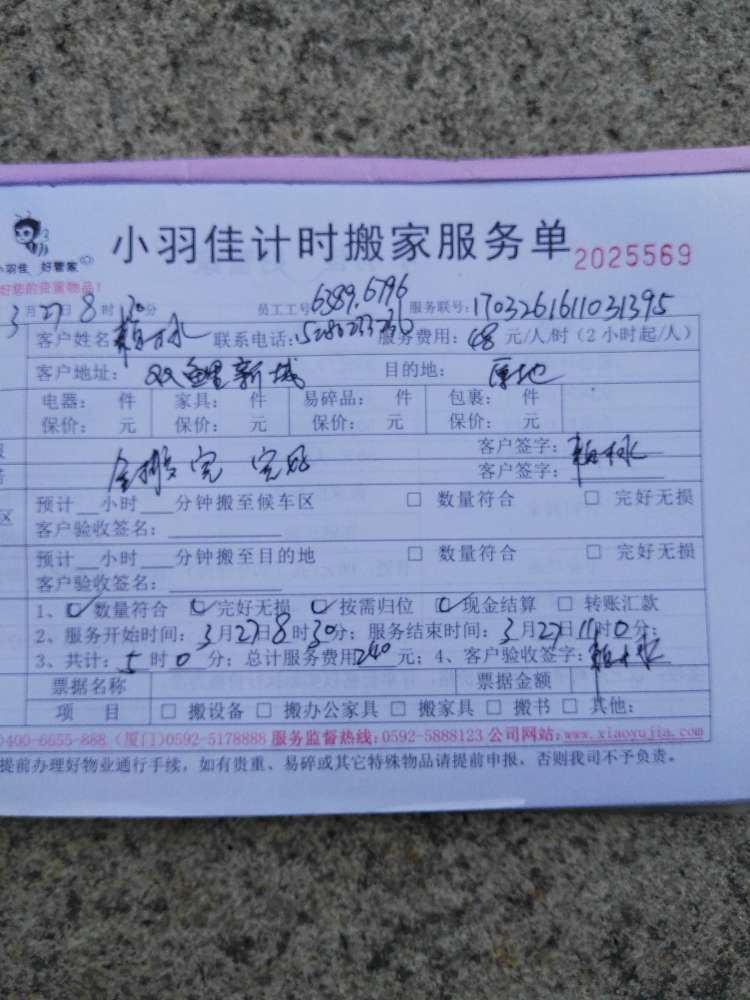 小羽佳 好管家
小羽佳计时搬家服务单 2025569
好您的贵重物品！
3月27日8时30分 员工工号6389.6796 服务联号:1703261611031395
客户姓名 联系电话: 服务费用: 48 元/人/时（2小时起/人）
客户地址: 双鲤新城 目的地: 原地
电器: 件 家具: 件 易碎品: 件 包裹: 件
保价: 元 保价: 元 保价: 元 保价: 元
客户签字:
全搬完 完好
客户签字:
预计__小时__分钟搬至候车区 □ 数量符合 □ 完好无损
区
客户验收签名:
预计__小时__分钟搬至目的地 □ 数量符合 □ 完好无损
客户验收签名:
1、☑数量符合 ☑完好无损 ☑按需归位 ☑现金结算 □ 转账汇款
2、服务开始时间: 3月27日8时30分; 服务结束时间: 3月27日11时0分;
3、共计: 5时0分; 总计服务费用240元; 4、客户验收签字:
票据名称 票据金额
项 目 □ 搬设备 □ 搬办公家具 □ 搬家具 □ 搬书 □ 其他:
400-6655-888 (厦门)0592-5178888 服务监督热线:0592-5888123 公司网站:www.xiaoyujia.com
提前办理好物业通行手续，如有贵重、易碎或其它特殊物品请提前申报，否则我司不予负责。